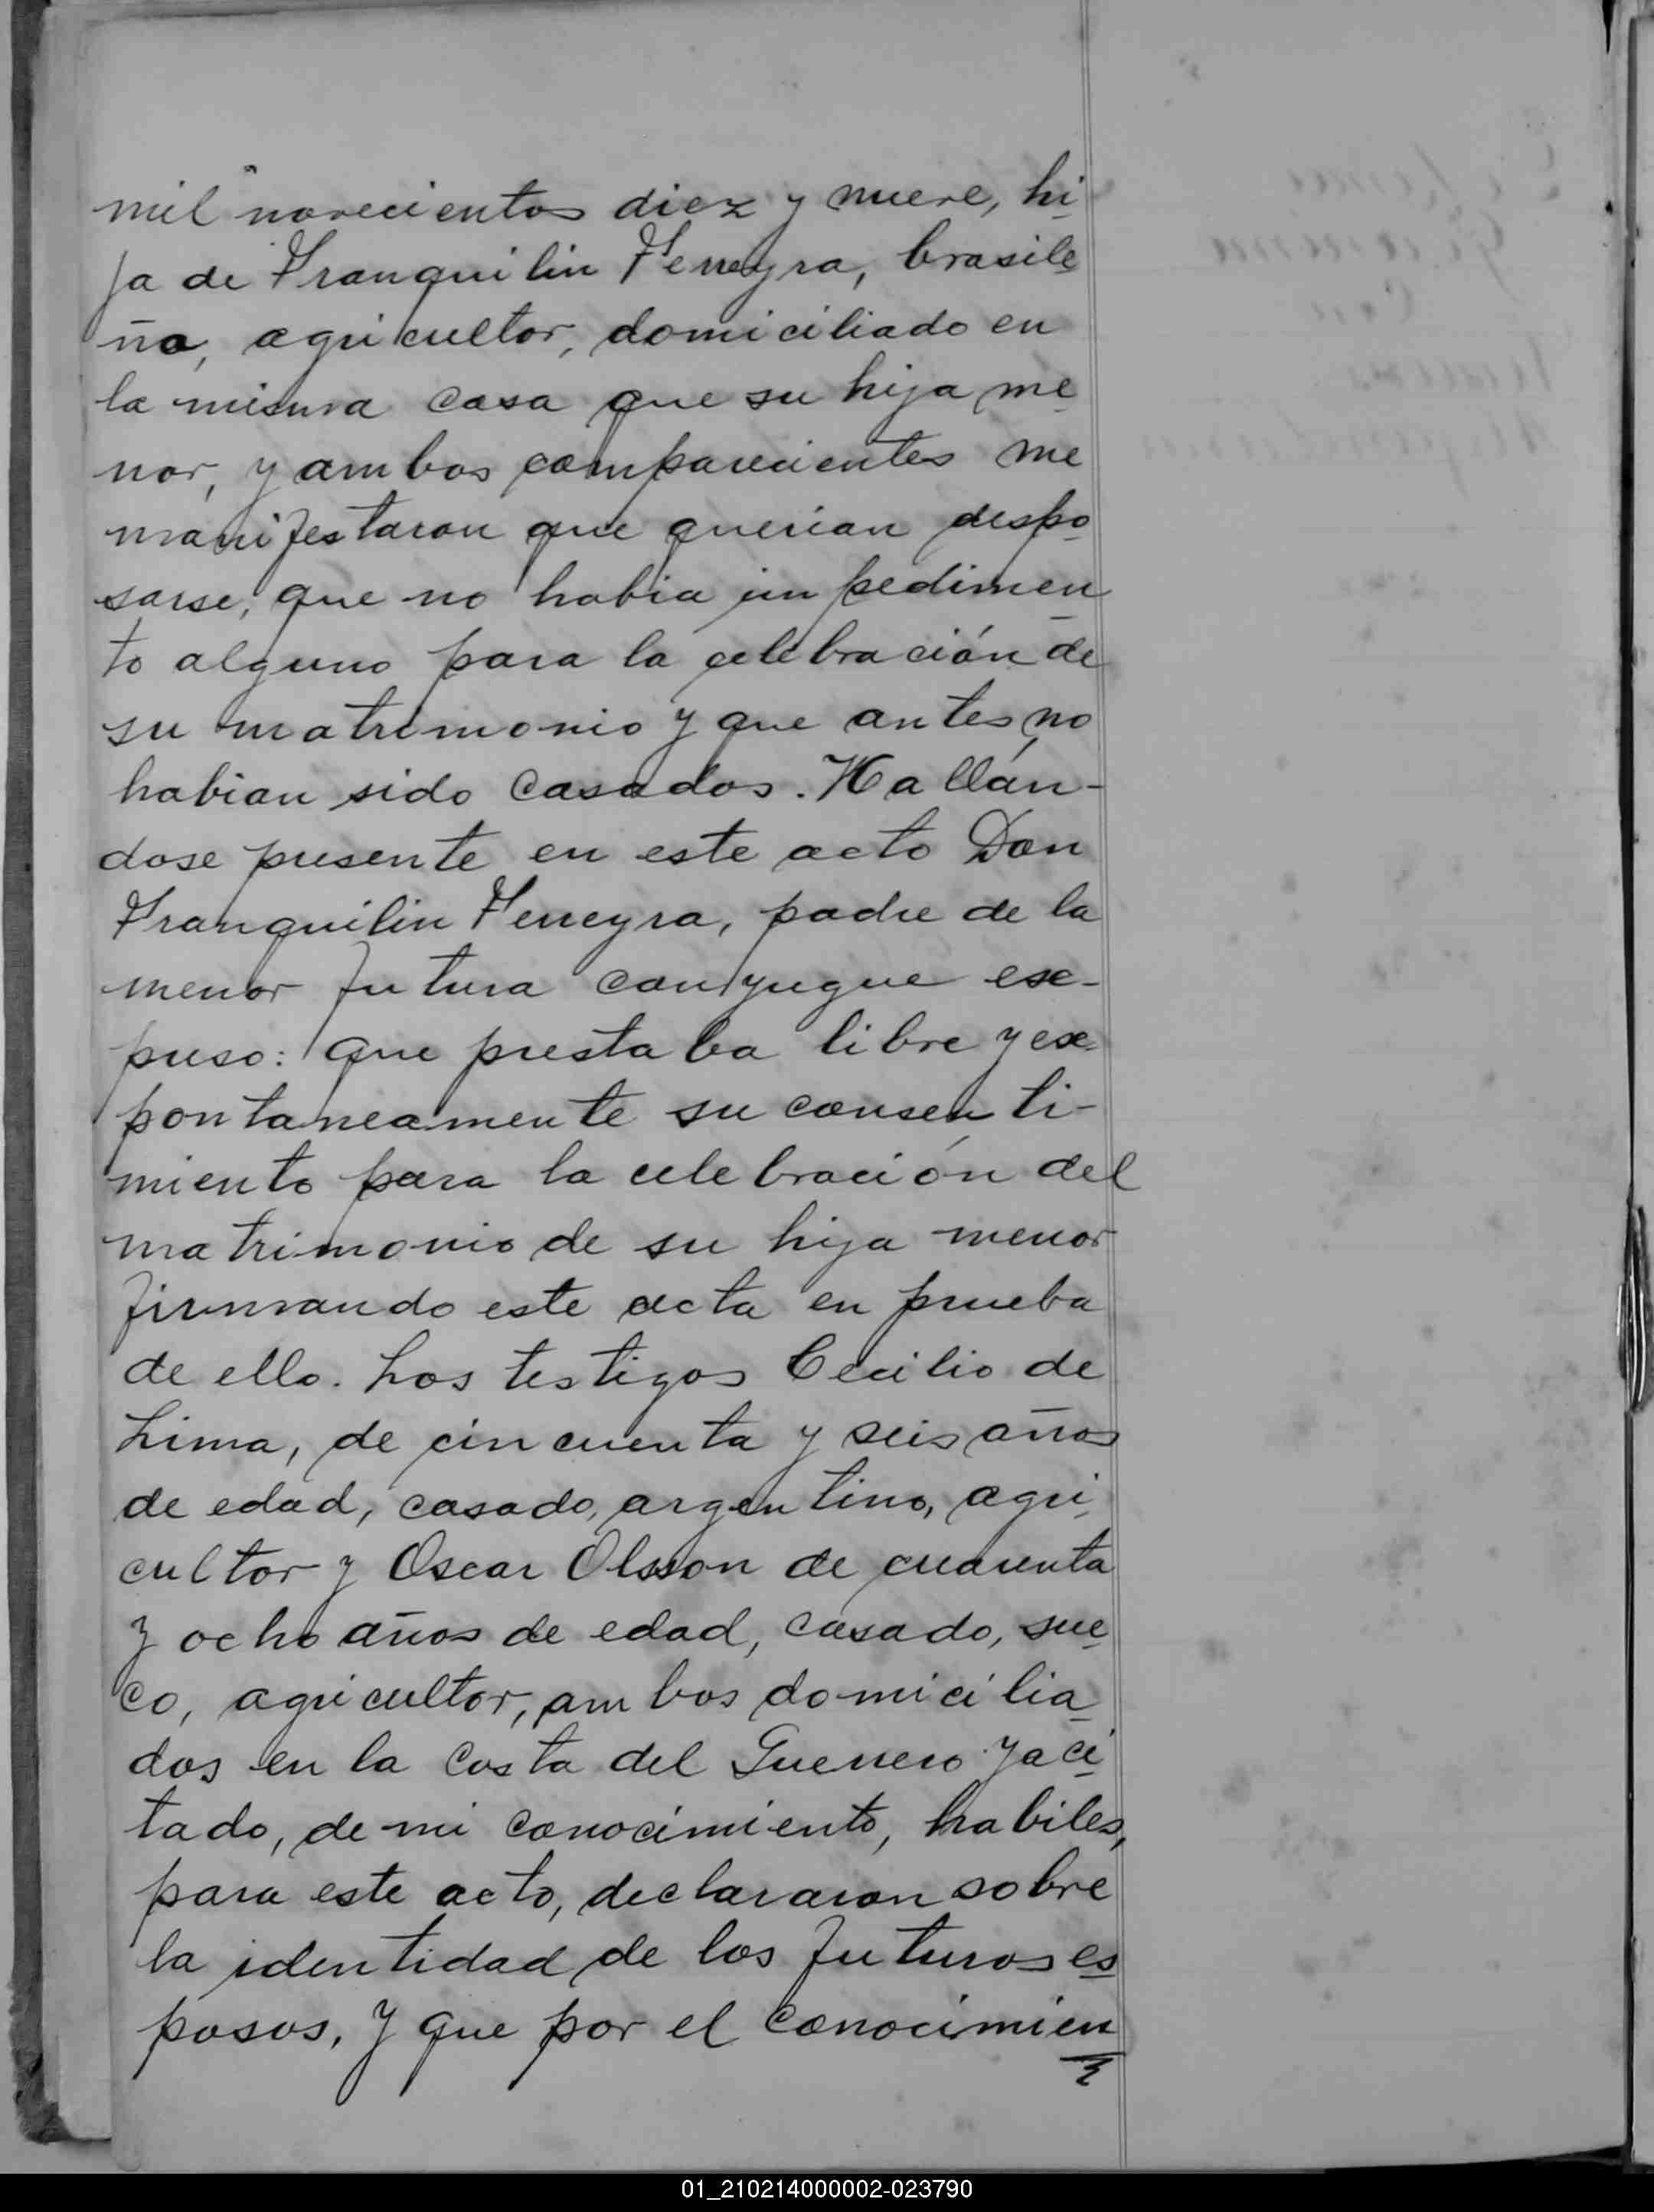 mil novecientos diez y nueve, hi
ja de Franquilin Ferreyra, brasile
ño, agricultor, domiciliado en
la misma casa que su hija me
nor, y ambos comparecientes me
manifestaron que querian despo
sarse, que no habia impedimen
to alguno para la celebración de
su matrimonio y que antes no
habian sido casados. Hallán-
dose presente en este acto Don
Franquilin Ferreyra, padre de la
menor futura conyugue ex-
puso: que prestaba libre y ex
pontaneamente su consenti-
miento para la celebración del
matrimonio de su hija menor
firmando este acta en prueba
de ello. Los testigos Cecilio de
Lima, de cincuenta y seis años
de edad, casado, argentino, agri
cultor y Oscar Olsson de cuarenta
y ocho años de edad, casado, sue
co, agricultor, ambos domicilia
dos en la Costa del Guerrero ya ci
tado, de mi conocimiento, habiles,
para este acto, declararon sobre
la identidad de los futuros es
posos, y que por el conocimien
01_210214000002-023790